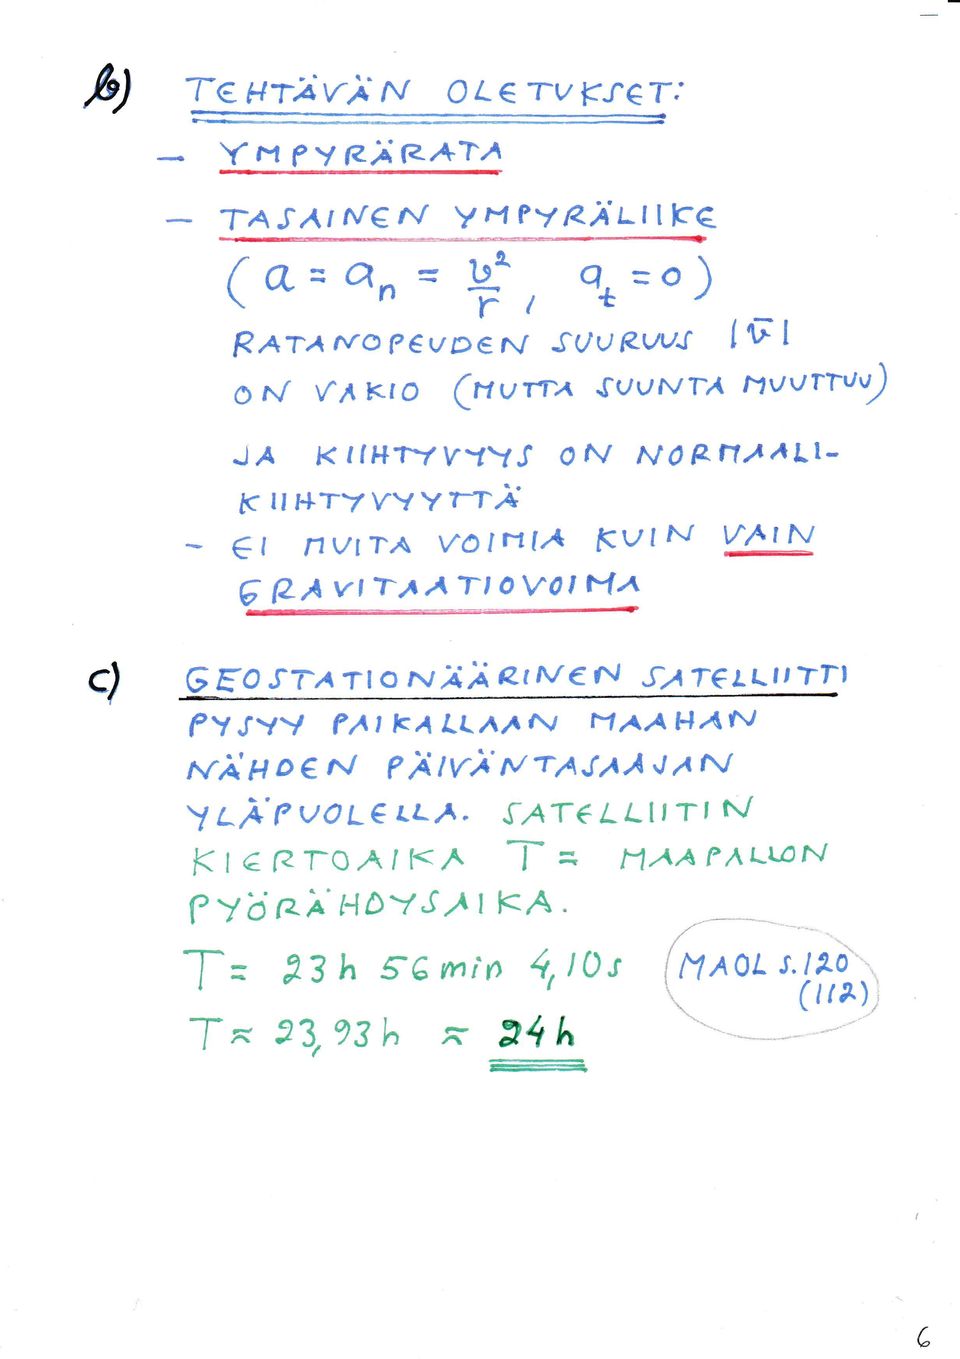 b) TEHTÄVÄN OLETUKSET:
– YMPYRÄRATA
– TASAINEN YMPYRÄLIIKE
( a = aₙ = v²/r , aₜ = 0 )
RATANOPEUDEN SUURUUS |v̄|
ON VAKIO (MUTTA SUUNTA MUUTTUU)
JA KIIHTYVYYS ON NORMAALI-
KIIHTYVYYTTÄ
– EI MUITA VOIMIA KUIN VAIN
GRAVITAATIOVOIMA
c) GEOSTATIONÄÄRINEN SATELLIITTI
PYSYY PAIKALLAAN MAAHAN
NÄHDEN PÄIVÄNTASAAJAN
YLÄPUOLELLA. SATELLIITIN
KIERTOAIKA T = MAAPALLON
PYÖRÄHDYSAIKA.
T = 23 h 56 min 4,10 s MAOL s. 120
(112)
T ≈ 23,93 h ≈ 24 h
6